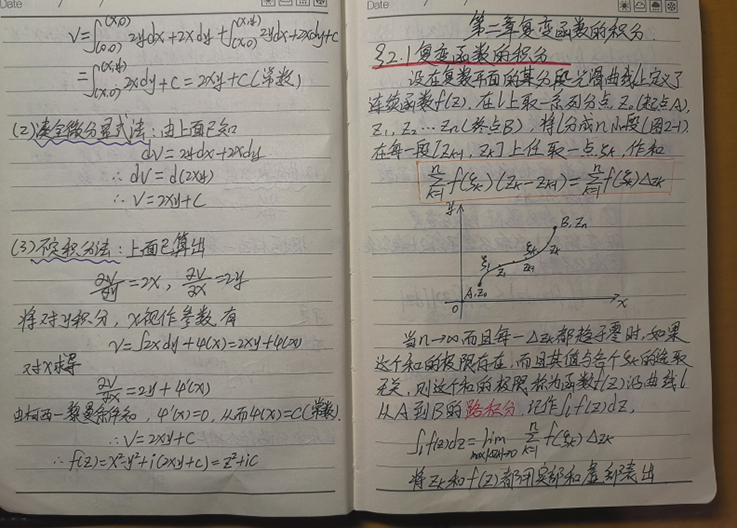 Date
v=∫(0,0)(x,0) 2ydx+2xdy+∫(x,0)(x,y) 2ydx+2xdy+C
=∫(x,0)(x,y) 2xdy+C=2xy+C(常数)
(2)凑全微分显式法:由上面已知
dv=2ydx+2xdy
∴dv=d(2xy)
∴v=2xy+C
(3)不定积分法:上面已算出
∂v/∂y=2x, ∂v/∂x=2y
将对y积分,x视作参数,有
v=∫2xdy+φ(x)=2xy+φ(x)
对x求导
∂v/∂x=2y+φ'(x)
由柯西—黎曼条件知,φ'(x)=0,从而φ(x)=C(常数).
∴v=2xy+C
∴f(z)=x²-y²+i(2xy+C)=z²+iC
Date
第二章复变函数的积分
§2.1复变函数的积分
设在复数平面的某分段光滑曲线l上定义了
连续函数f(z),在l上取一系列分点Z₀(起点A),
Z₁,Z₂…Zn(终点B),将l分成n小段(图2-1).
在每一段[Zk-1,Zk]上任取一点ξk,作和
∑k=1n f(ξk)(Zk-Zk-1)=∑k=1n f(ξk)ΔZk
y
B,Zn
ξk
Zk
ξ1
Z1
Zk-1
A,Z₀
O
x
当n→∞而且每一ΔZk都趋于零时,如果
这个和的极限存在,而且其值与各个ξk的选取
无关,则这个和的极限称为函数f(z)沿曲线l
从A到B的路积分,记作∫l f(z)dz,
∫l f(z)dz=lim max|ΔZk|→0 ∑k=1n f(ξk)ΔZk
将Zk和f(z)都用实部和虚部表出